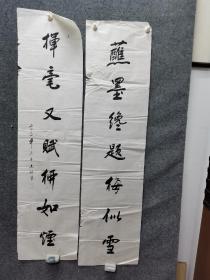 蘸墨才題梅似雪
揮毫又賦柳如煙